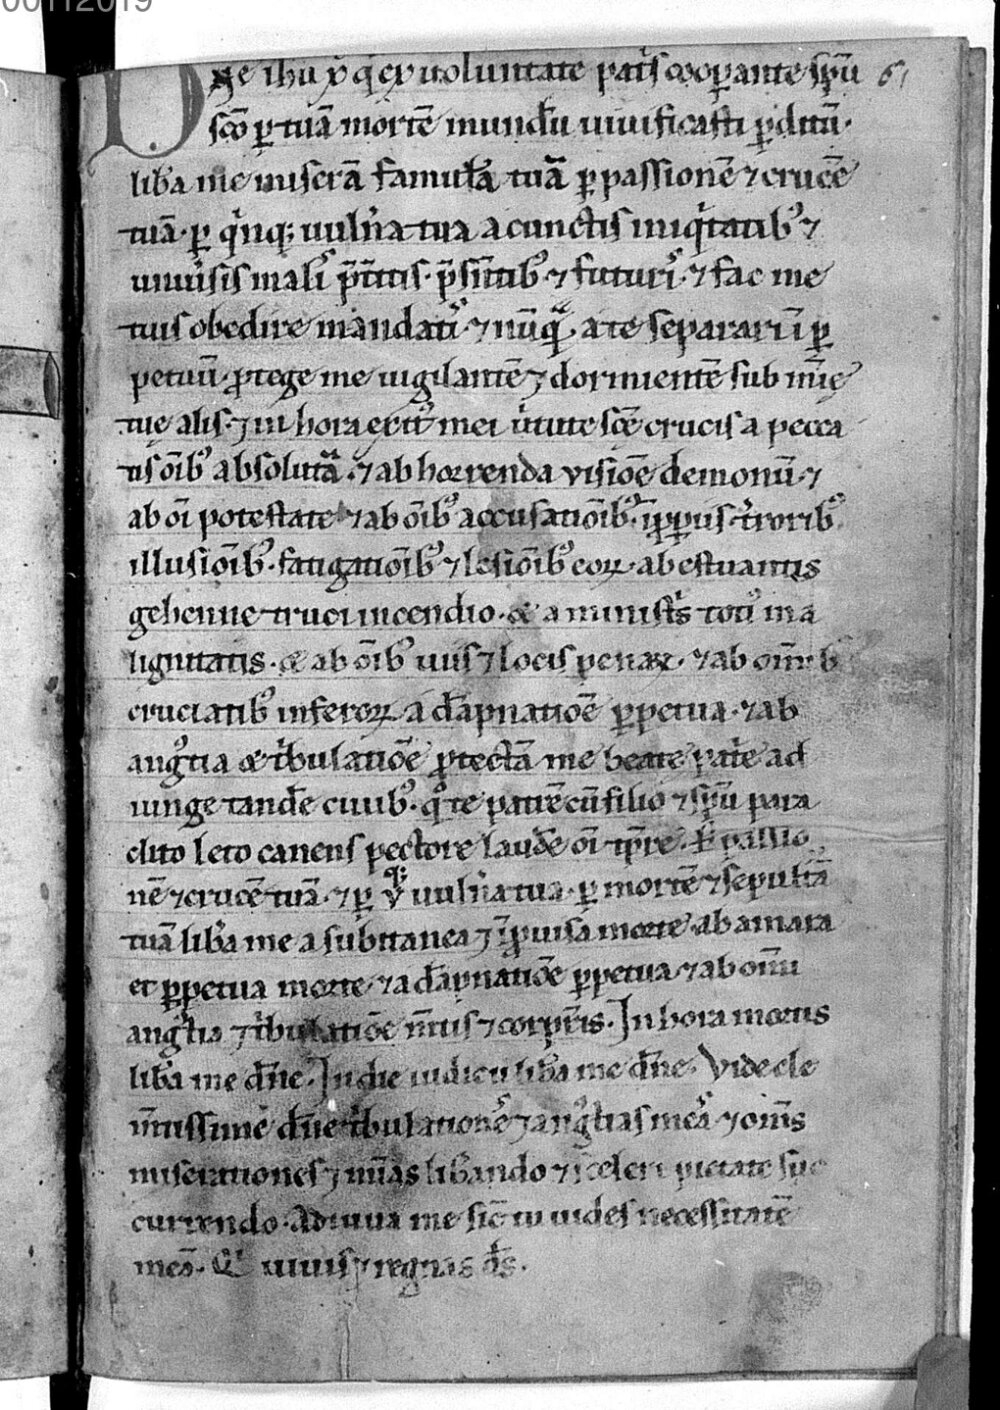 00112019
Dn̄e ihu xp̄ q̇ ex uoluntate pat̾s cooꝑante sp̄u 61
sc̄o ꝑ tuā mortē mundū uiuificasti ꝑditū·
lib̾a me miserā famulā tuā ꝑ passionē ⁊ crucē
tuā· ꝑ q̇nq; uuln̾a tua a cunctis iniq̇tatibꝰ ⁊
uniu̾sis malis p̄t̾itis· p̄sn̄tibꝰ ⁊ futuris· ⁊ fac me
tuis obedire mandatis· ⁊ nūqᷓ a te separari ī ꝑ
petuū· ꝓtege me uigilantē ⁊ dormientē sub
tuę alis· ⁊ in hora exitꝰ mei u̾tute sc̄e crucis a pecca
tis oīb' absolutā· ⁊ ab horrenda visiōe demonū· ⁊
ab oī potestate ⁊ ab oīb' accusatiōib'· t̾roribꝰ
illusiōibꝰ· fatigatiōibꝰ ⁊ lesiōibꝰ eoꝝ· ab estuantis
gehenne truci incendio· & a minist̾s totiꝰ ma
lignitatis· & ab oīb' uiis ⁊ locis penaꝝ· ⁊ ab omīb'
cruciatibꝰ inferoꝝ a dāpnatiōe ꝑpetua· ⁊ ab
angꝰtia & t̾bulatiōe ꝓtectā me beate pat̾e ad
iunge tandē ciuibꝰ· te patrē cū filio ⁊ sp̄u para
clito leto canens pectore laudē oī tp̄re· ꝑ passio
nē ⁊ crucē tuā· ⁊ ꝑ v uuln̾a tua· ꝑ mortē ⁊ sepultā
tuā lib̾a me a subitanea ⁊ īꝓuisa morte· ab amara
et ꝑpetua morte· ⁊ a dāpnatiōe ꝑpetua· ⁊ ab omni
angꝰtia ⁊ t̾bulatiōe m̄tis ⁊ corp̄ris· In hora mortis
lib̾a me dn̄e· In die iudicii lib̾a me dn̄e· Vide cle
m̄tissime dn̄e t̾bulationēs ⁊ angꝰtias meas ⁊ om̄s
miserationes ⁊ mīas lib̾ando ⁊ sceleri pietate suc
currendo· Adiuua me sic̄ tu uides necessitatē
meā· Qͥ uiuis ⁊ regnas d̄s·